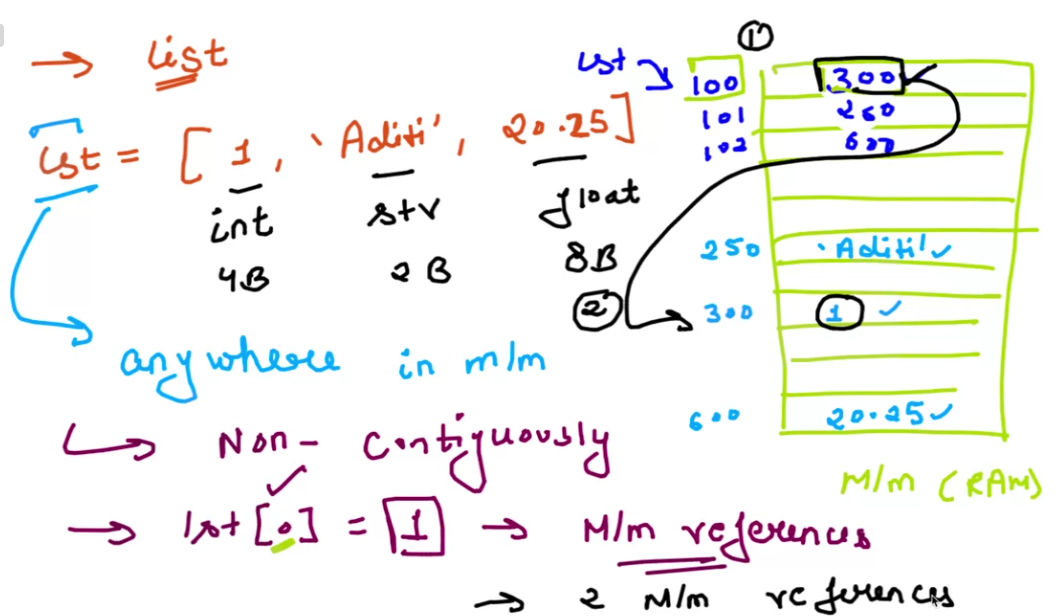 → list
lst = [ 1, 'Aditi', 20.25 ]
int str float
4B 2B 8B
anywhere in m/m
Non-Contiguously
→ lst [0] = 1 → M/m references
→ 2 M/m references
①
lst
100 300
101 250
102 600
250 'Aditi' ✓
② 300 1 ✓
600 20.25 ✓
M/m (RAM)